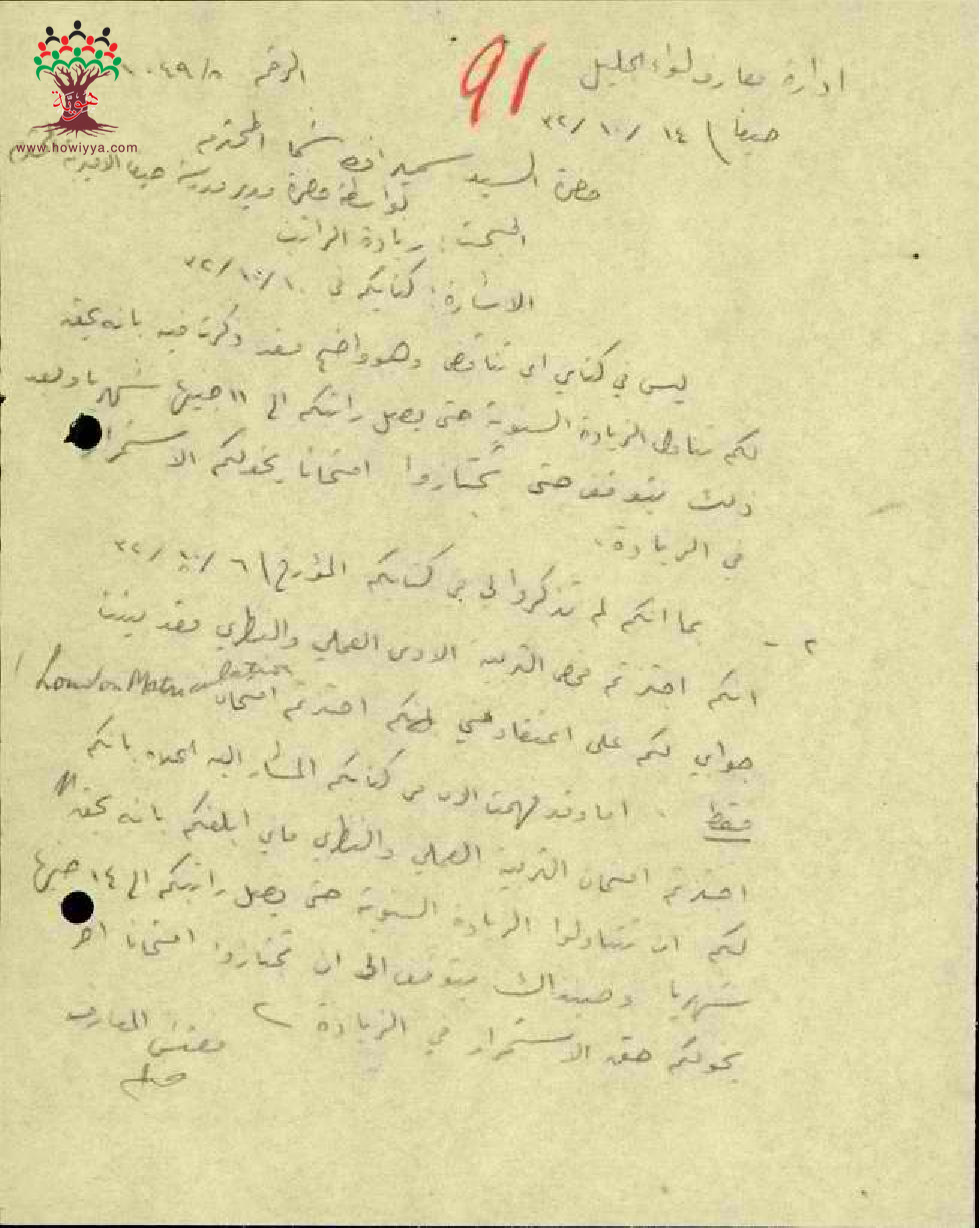 ادارة معارف لواء الجليل
الرقم ١٠٤٩/٥
91
هوية
www.howiyya.com
حيفا / ١٤ /١٠/ ٣٢
حضرة السيد سميد افندي شما المحترم
بواسطة حضرة مدير مدرسة حيفا الاميرية المحترم
المبحث : زيادة الراتب
الاشارة : كتابكم في ١٠/١٠/٣٢
ليس في كتابي اي تناقض وهو واضح فقد ذكرت فيه بانه يحق
لكم تناول الزيادة السنوية حتى يصل راتبكم الى ١١ جنيها شهريا وبعد
ذلك يتوقف حتى تجتازوا امتحانا يخولكم الاستمرار
في الزيادة .
٢ - بما انكم لم تذكروا لي في كتابكم المؤرخ ٦/١٠/٣٢
انكم اجتزتم فحص التربية الادنى العملي والنظري فقد بنيت
جوابي لكم على اعتقاد مني بانكم اجتزتم امتحان London Matriculation
فقط . اما وقد فهمت الان من كتابكم المشار اليه اعلاه بانكم
اجتزتم امتحان التربية العملي والنظري فاني ابلغكم بانه يحق
لكم ان تتناولوا الزيادة السنوية حتى يصل راتبكم الى ١٤ جنيها
شهريا وحينذاك يتوقف الى ان تجتازوا امتحانا اخر
يخولكم حق الاستمرار في الزيادة
مفتش المعارف